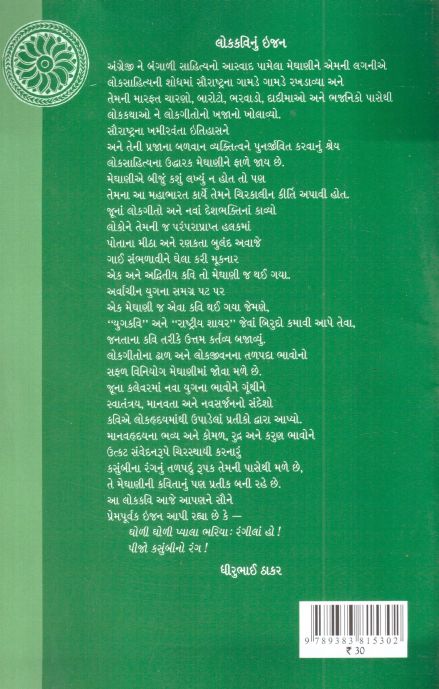 લોકકવિનું ઇજન
અંગ્રેજી ને બંગાળી સાહિત્યનો આસ્વાદ પામેલા મેઘાણીને એમની લગનીએ
લોકસાહિત્યની શોધમાં સૌરાષ્ટ્રના ગામડે ગામડે રખડાવ્યા અને
તેમની મારફત ચારણો, બારોટો, ભરવાડો, દાદીમાઓ અને ભજનિકો પાસેથી
લોકકથાઓ ને લોકગીતોનો ખજાનો ખોલાવ્યો.
સૌરાષ્ટ્રના ખમીરવંતા ઇતિહાસને
અને તેની પ્રજાના બળવાન વ્યક્તિત્વને પુનર્જીવિત કરવાનું શ્રેય
લોકસાહિત્યના ઉદ્ધારક મેઘાણીને ફાળે જાય છે.
મેઘાણીએ બીજું કશું લખ્યું ન હોત તો પણ
તેમના આ મહાભારત કાર્યે તેમને ચિરકાલીન કીર્તિ અપાવી હોત.
જૂનાં લોકગીતો અને નવાં દેશભક્તિનાં કાવ્યો
લોકોને તેમની જ પરંપરાપ્રાપ્ત હલકમાં
પોતાના મીઠા અને રણકતા બુલંદ અવાજે
ગાઈ સંભળાવીને ઘેલા કરી મૂકનાર
એક અને અદ્વિતીય કવિ તો મેઘાણી જ થઈ ગયા.
અર્વાચીન યુગના સમગ્ર પટ પર
એક મેઘાણી જ એવા કવિ થઈ ગયા જેમણે,
“યુગકવિ” અને “રાષ્ટ્રીય શાયર” જેવાં બિરુદો કમાવી આપે તેવા,
જનતાના કવિ તરીકે ઉત્તમ કર્તવ્ય બજાવ્યું.
લોકગીતોના ઢાળ અને લોકજીવનના તળપદા ભાવોનો
સફળ વિનિયોગ મેઘાણીમાં જોવા મળે છે.
જૂના કલેવરમાં નવા યુગના ભાવોને ગૂંથીને
સ્વાતંત્ર્ય, માનવતા અને નવસર્જનનો સંદેશો
કવિએ લોકહૃદયમાંથી ઉપાડેલાં પ્રતીકો દ્વારા આપ્યો.
માનવહૃદયના ભવ્ય અને કોમળ, રુદ્ર અને કરુણ ભાવોને
ઉત્કટ સંવેદનરૂપે ચિરસ્થાયી કરનારું
કસુંબીના રંગનું તળપદું રૂપક તેમની પાસેથી મળે છે,
તે મેઘાણીની કવિતાનું પણ પ્રતીક બની રહે છે.
આ લોકકવિ આજે આપણને સૌને
પ્રેમપૂર્વક ઇજન આપી રહ્યા છે કે –
ઘોળી ઘોળી પ્યાલા ભરિયા: રંગીલાં હો!
પીજો કસુંબીનો રંગ!
ધીરુભાઈ ઠાકર
9 789383 815302
₹ 30